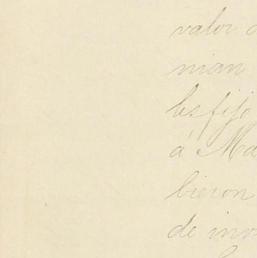 valor
nian
les fijó
á Ma
bieron
de inv